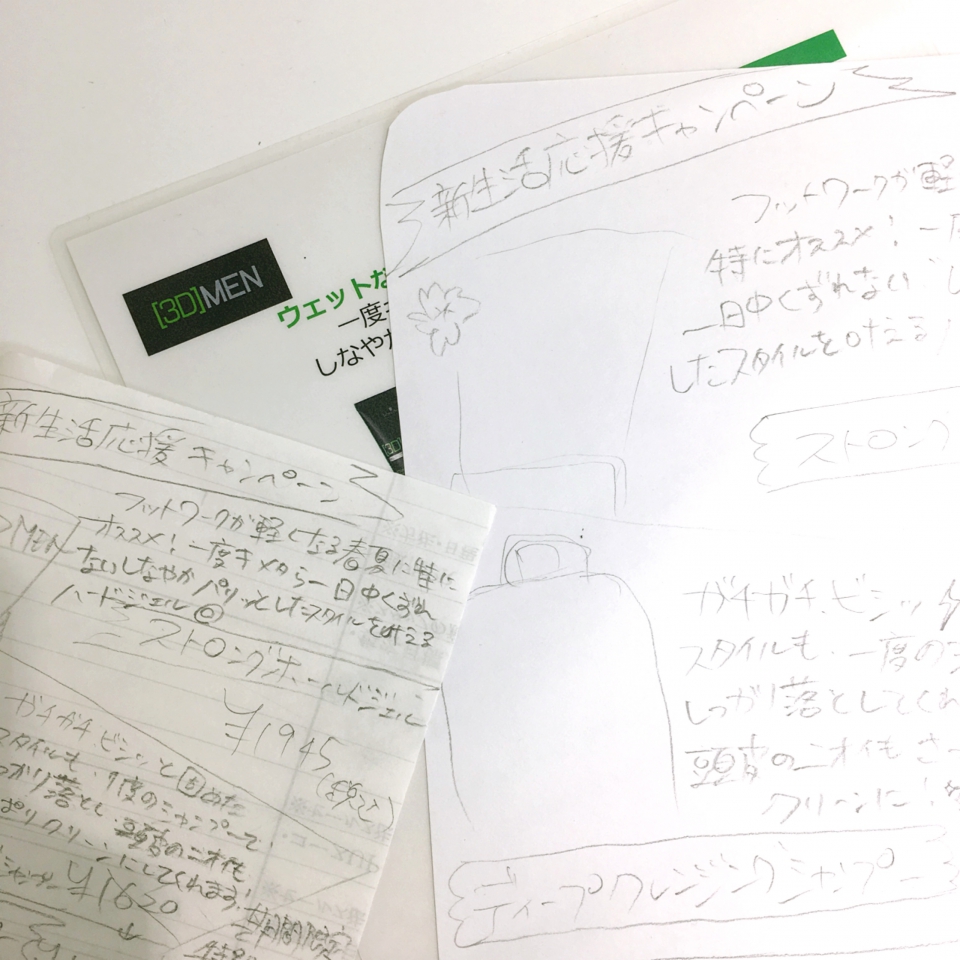 [3D]MEN
ウェットな
一度キ
しなやか
新生活応援キャンペーン
フットワークが軽
特にオススメ！一度
一日中くずれない し
したスタイルを叶える
ストロング
ガチガチ、ビシッ
スタイルも、一度の
しっかり落としてくれ
頭皮のニオイも さっ
クリーンに！
ディープクレンジングシャンプー
新生活応援キャンペーン
フットワークが軽くなる春夏に特に
MEN
オススメ！一度キメたら一日中くずれ
ないしなやかパリッとしたスタイルを叶える
ハードジェル
ストロングホールドジェル
¥1945
(ぜいこみ)
ガチガチ、ビシッと固めた
スタイルも、1度のシャンプーで
っかり落とし、頭皮のニオイも
ぱりクリーンにしてくれます！
シャンプー ¥1620
期間限定